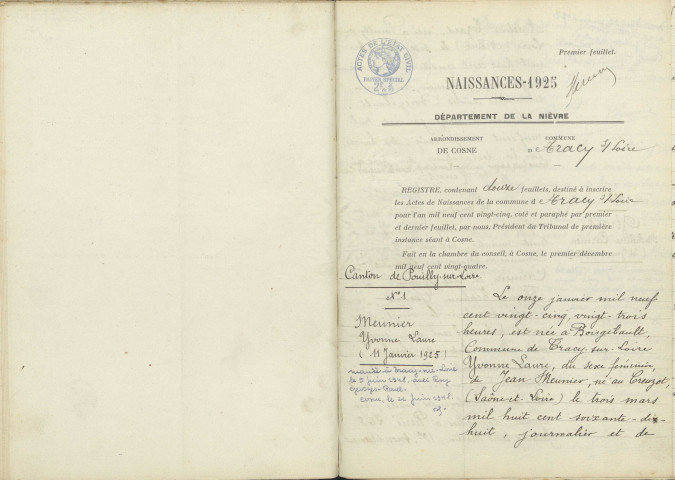 ACTES DE L'ETAT CIVIL
PAPIER SPÉCIAL
Premier feuillet.
NAISSANCES-1925
DÉPARTEMENT DE LA NIÈVRE
ARRONDISSEMENT
DE COSNE
COMMUNE
D Tracy s/Loire
REGISTRE, contenant douze feuillets, destiné à inscrire
les Actes de Naissances de la commune d Tracy s/Loire
pour l'an mil neuf cent vingt-cinq, coté et paraphé par premier
et dernier feuillet, par nous, Président du Tribunal de première
instance séant à Cosne.
Fait en la chambre du conseil, à Cosne, le premier décembre
mil neuf cent vingt-quatre.
Canton de Pouilly-sur-Loire
N° 1
Meunier
Yvonne Laure
(11 Janvier 1925)
mariée à Tracy-sur-Loire
le 5 juin 1948, avec
Georges Paul.
Le onze janvier mil neuf
cent vingt-cinq, vingt-trois
heures, est née à Bougibault,
Commune de Tracy-sur-Loire
Yvonne Laure, du sexe féminin,
de Jean Meunier, né au Creuzot,
(Saône-et-Loire) le trois mars
mil huit cent soixante-dix-
huit, journalier et de